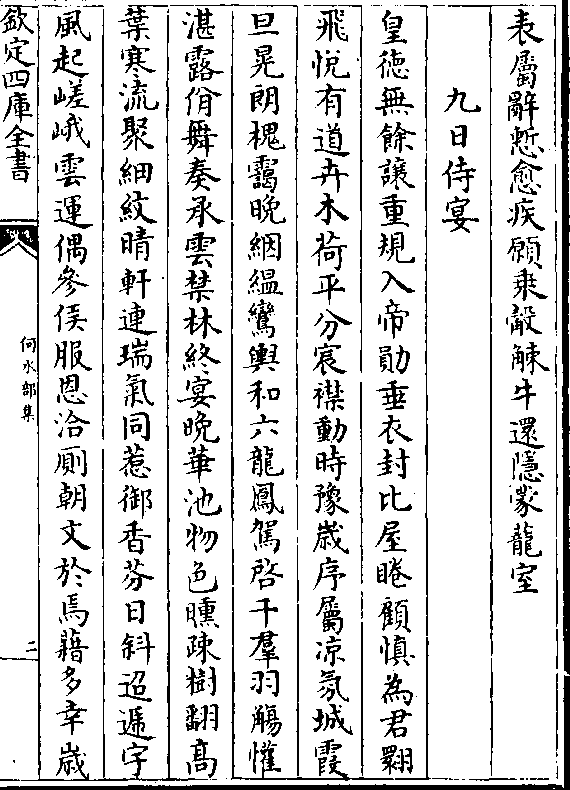 表屬辭慙愈疾願乘觳觫牛還隱蒙龍室
九日侍宴
皇徳無餘讓重規入帝勛垂衣封比屋睠顧慎為君翾
飛悅有道卉木荷平分宸襟動時豫歳序屬涼氛城霞
旦晃朗槐靄晚絪緼鸞輿和六龍鳳駕啓千羣羽觴懽
湛露佾舞奏承雲禁林終宴晚華池物色曛疎樹翻高
葉寒流聚細紋晴軒連瑞氣同惹御香芬日斜迢遞宇
風起嵯峨雲運偶參侯服恩洽厠朝文於焉藉多幸歳
欽定四庫全書
何水部集
二